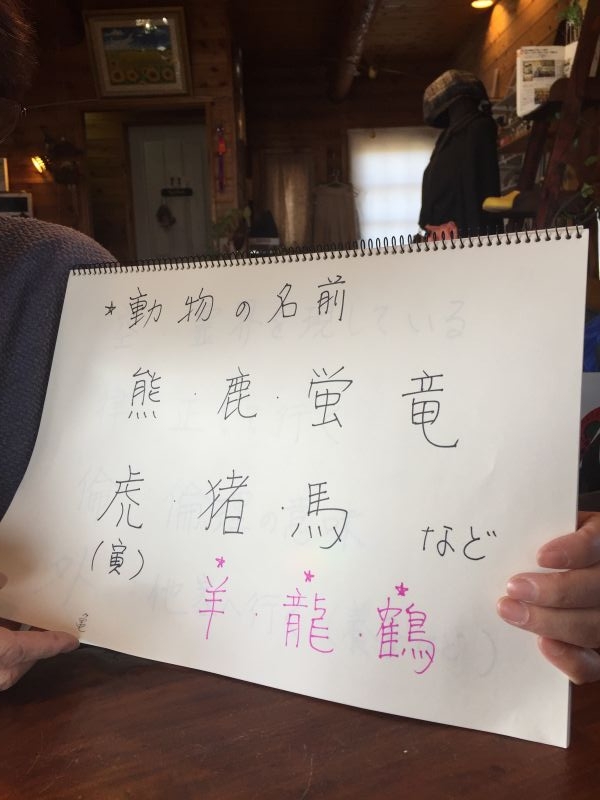 *動物の名前
熊・鹿・蛍 竜
虎・猪・馬 など
(寅)
★ ★ ★
羊・龍・鶴